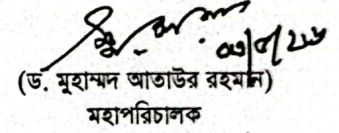 (ড. মুহাম্মদ আতাউর রহমান)
মহাপরিচালক